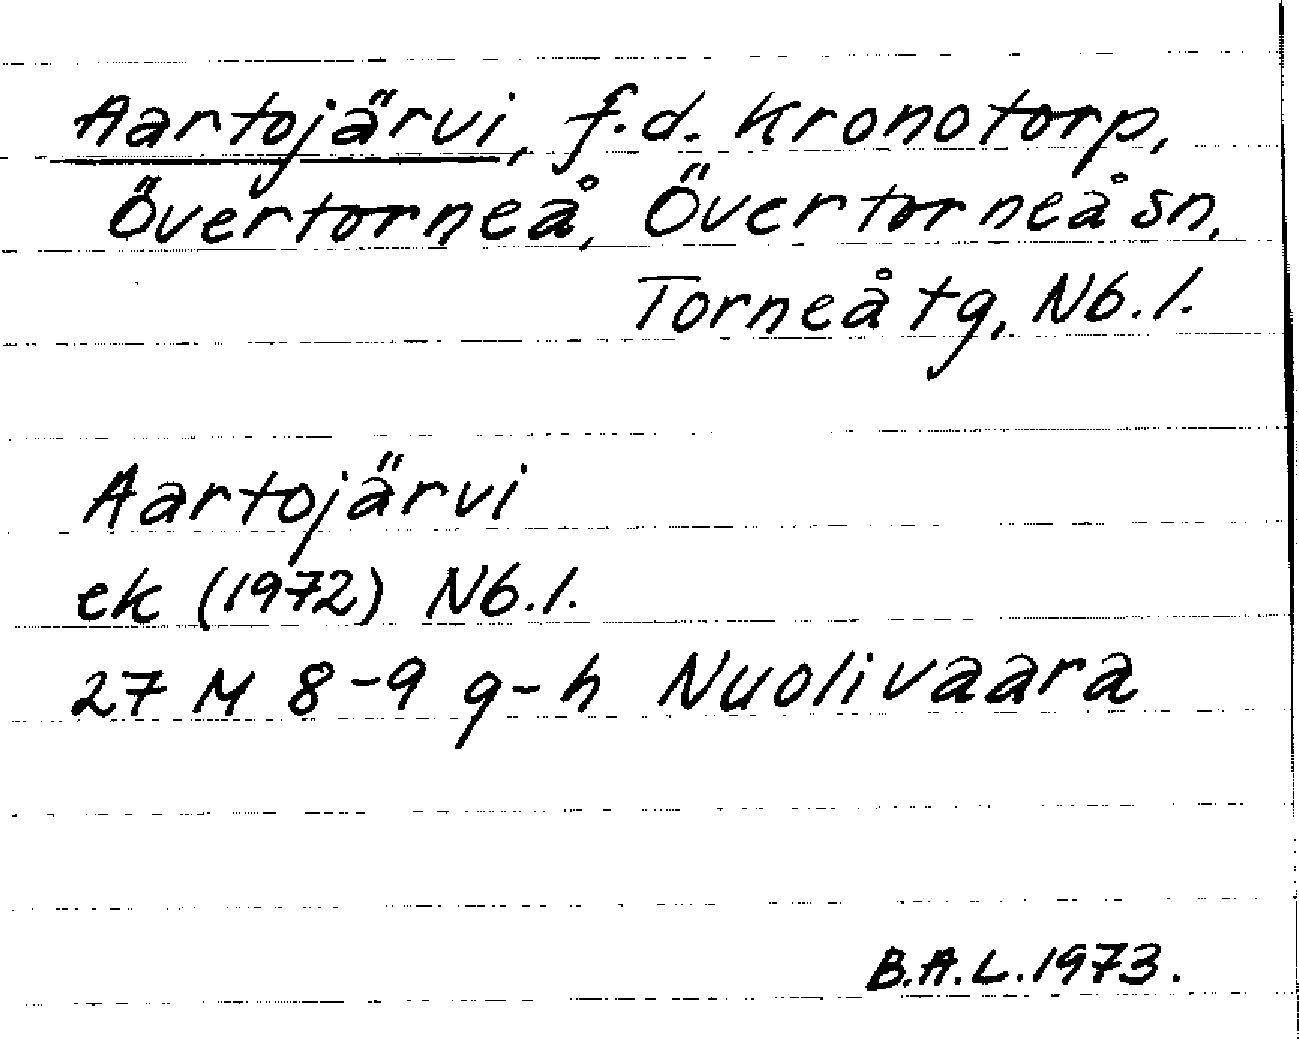 Aartojärvi, f.d. Kronotorp,
Övertorneå, Övertorneå sn,
Torneå tg, Nb.l.
Aartojärvi
ek (1972) Nb.l.
27 M 8-9 g-h Nuolivaara
B.A.L. 1973.